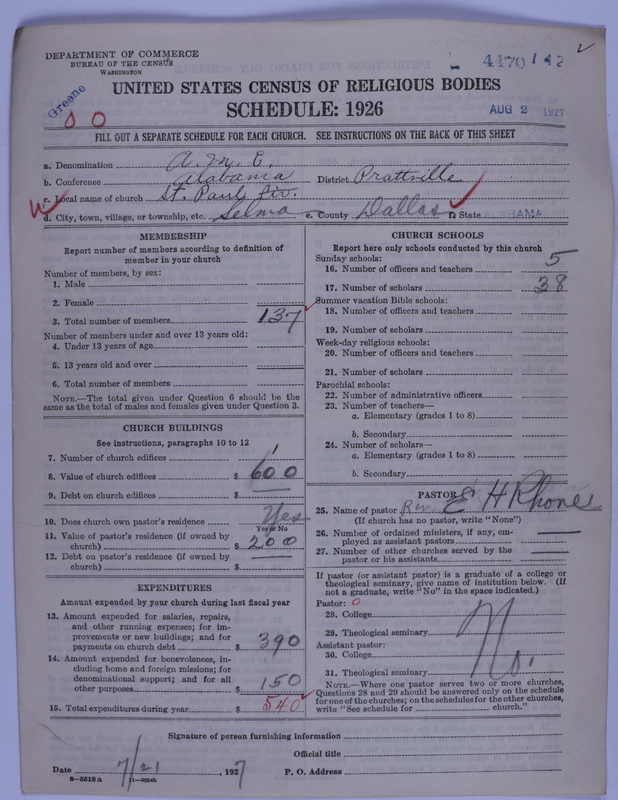 DEPARTMENT OF COMMERCE
BUREAU OF THE CENSUS
WASHINGTON
4470 142
Greene
UNITED STATES CENSUS OF RELIGIOUS BODIES
SCHEDULE: 1926
AUG 2 1927
FILL OUT A SEPARATE SCHEDULE FOR EACH CHURCH. SEE INSTRUCTIONS ON THE BACK OF THIS SHEET
a. Denomination A. M. E.
b. Conference Alabama District Prattville
c. Local name of church St. Paul Cir.
d. City, town, village, or township, etc. Selma e. County Dallas f. State ALABAMA
MEMBERSHIP
Report number of members according to definition of
member in your church
Number of members, by sex:
1. Male
2. Female
3. Total number of members 137
Number of members under and over 13 years old:
4. Under 13 years of age
5. 13 years old and over
6. Total number of members
NOTE.—The total given under Question 6 should be
same as the total of males and females given under Question 3.
CHURCH BUILDINGS
See instructions, paragraphs 10 to 12
7. Number of church edifices 1
8. Value of church edifices $ 600
9. Debt on church edifices $
10. Does church own pastor's residence Yes
Yes or No
11. Value of pastor's residence (if owned by
church) $ 200
12. Debt on pastor's residence (if owned by
church) $
EXPENDITURES
Amount expended by your church during last fiscal year
13. Amount expended for salaries, repairs,
and other running expenses; for im-
provements or new buildings; and for
payments on church debt $ 390
14. Amount expended for benevolences, in-
cluding home and foreign missions; for
denominational support; and for all
other purposes $ 150
15. Total expenditures during year $ 540
CHURCH SCHOOLS
Report here only schools conducted by this church
Sunday schools:
16. Number of officers and teachers 5
17. Number of scholars 38
Summer vacation Bible schools:
18. Number of officers and teachers
19. Number of scholars
Week-day religious schools:
20. Number of officers and teachers
21. Number of scholars
Parochial schools:
22. Number of administrative officers
23. Number of teachers—
a. Elementary (grades 1 to 8)
b. Secondary
24. Number of scholars—
a. Elementary (grades 1 to 8)
b. Secondary
PASTOR
25. Name of pastor Rev. E H Rhone
(If church has no pastor, write "None")
26. Number of ordained ministers, if any, em-
ployed as assistant pastors
27. Number of other churches served by the
pastor or his assistants
If pastor (or assistant pastor) is a graduate of a college or
theological seminary, give name of institution below. (If
not a graduate, write "No" in the space indicated.)
Pastor: 0
28. College
29. Theological seminary
Assistant pastor: No.
30. College
31. Theological seminary
NOTE.—Where one pastor serves two or more churches,
Questions 28 and 29 should be answered only on the schedule
for one of the churches; on the schedules for the other churches,
write "See schedule for church."
Signature of person furnishing information
Official title
Date 7/21, 1927 P. O. Address
8—5518 a